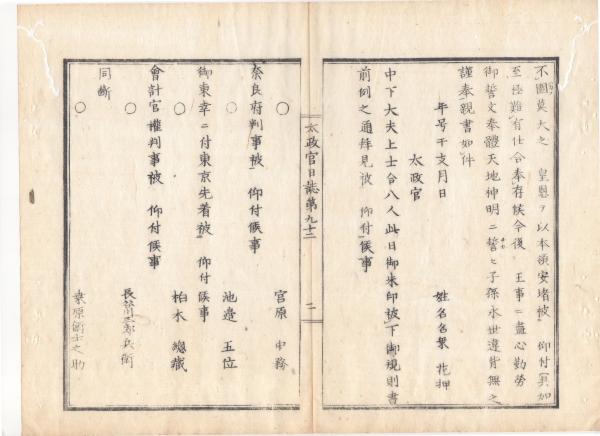 不図莫大之 皇恩ヲ以本領安堵被 仰付冥加
至極難有仕合奉存候今後 王事ニ盡心勤勞
御誓文奉體天地神明ニ誓ヒ子孫永世違背無之
謹奉親書如件
年号干支月日
太政官 姓名名乗 花押
中下大夫上士合八人此日御朱印被下御規則書
前例之通拜見被 仰付候事
太政官日誌第九十二 二
○ 宮原 中務
奈良府判事被 仰付候事
○ 池邊 五位
御東幸ニ付東京先着被 仰付候事
○ 柏木 總藏
會計官權判事被 仰付候事
○ 長 兵衛
同断
○ 桑原 之助